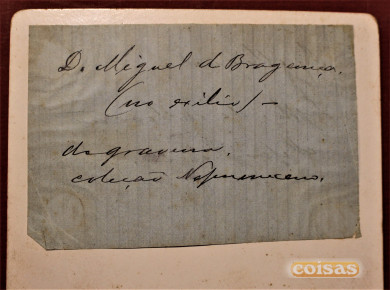 D. Miguel d Bragança.
(no exilio) —
da gravura.
coleção Nepomuceno.
coisas